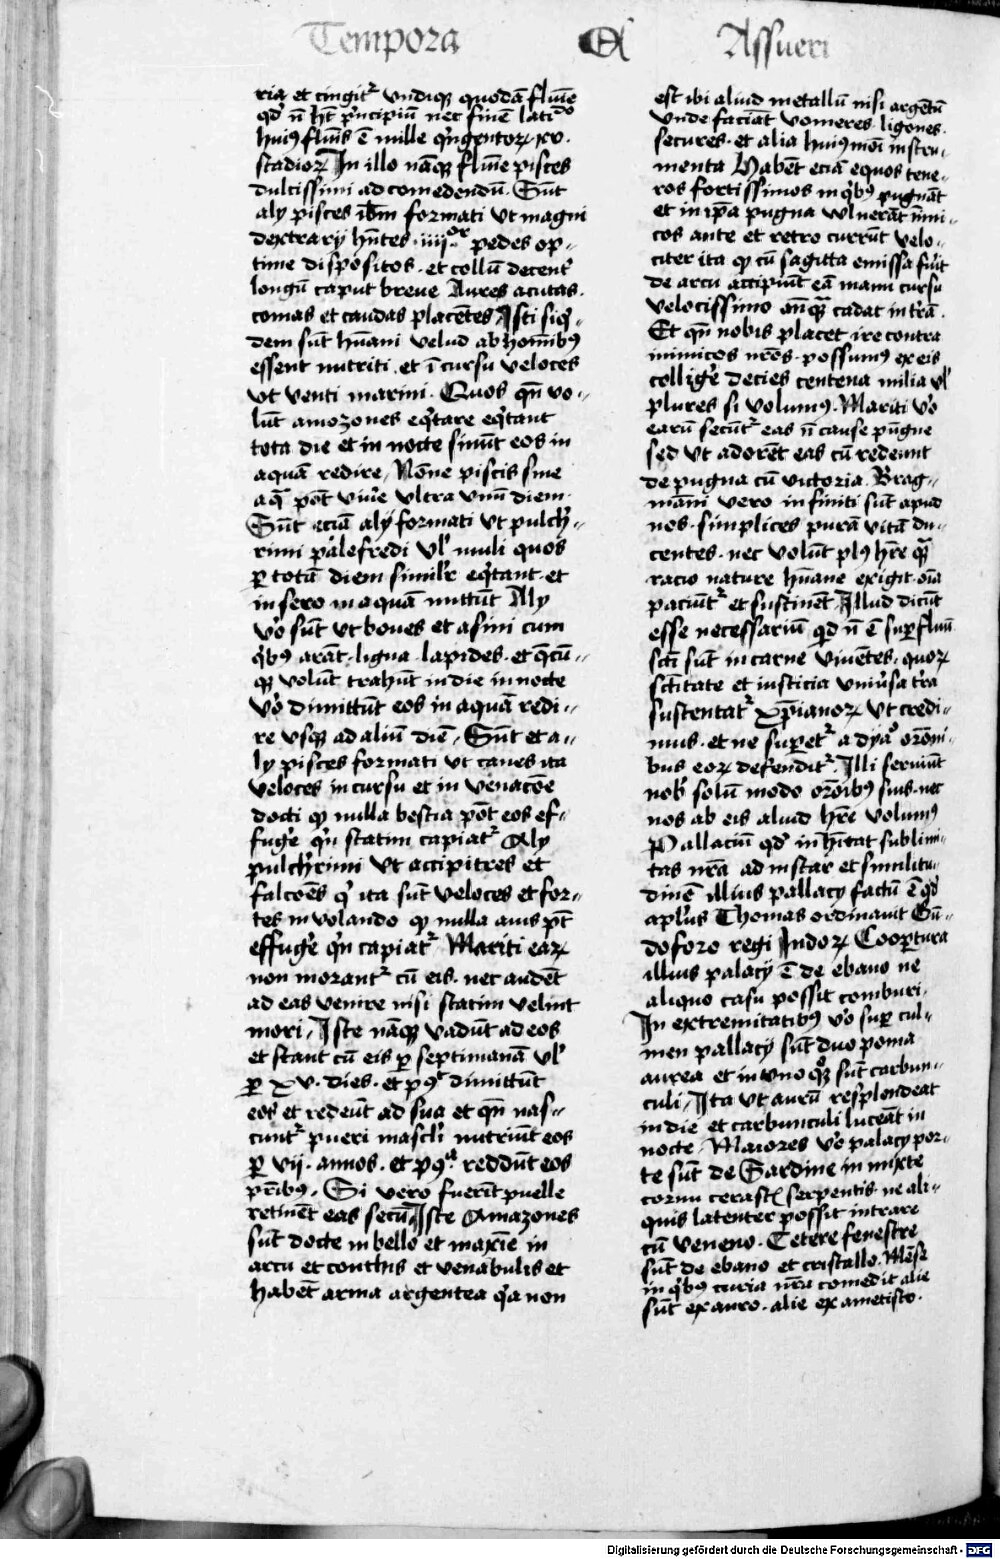 Tempora Assueri
ria et cingit᷑ vndiqꝫ quodā fluīe
qđ n̄ hꝫt pͥncipiū nec finē latido
huiꝰ fluīs ē mille qͥngentoꝝ xv.
stadioꝝ In illo nāqꝫ fluīe pisces
dulcissimi ad comedendū. Sūt
aly pisces ibīm formati vt magni
dextrarij hn̄tes .iiijor pedes op-
time dispositos. et collū decent᷑
longū caput breue Aures acutas.
comas et caudas placētes Isti siqͥ-
dem sūt hūani velud ab homībꝰ
essent nutriti. et ī cursu veloces
vt venti marini. Quos qn̄ vo-
lūt amozones eqͥtare eqͥtant
tota die et in nocte sinūt eos in
aquā redire, Nōne piscis sine
aqͣ pōt viuͦe vltra vnū diem.
Sūt eciā aly formati vt pulchͥ-
rimi palefredi vl̓ muli quos
ꝑ totū diem simil̓r eqͥtant. et
in sero in aquā mittūt Aly
vͦo sūt vt boues et asini cum
qͥbꝰ arāt. ligna. lapides. et qͣcū-
qꝫ volūt trahūt in die in nocte
vͦo dimittūt eos in aquā redi-
re vsqꝫ ad aliū diē, Sūt et a-
ly pisces formati vt canes ita
veloces in cursu et in venacōe
docti qꝫ nulla bestia pōt eos ef-
fugͦe qͥn statim capiat᷑ Aly
pulchͥrimi vt accipitres et
falcōes qͥ ita sūt veloces et for-
tes in volando qꝫ nulla auis pōt
effugͦe qͥn capiat᷑ Mariti eaꝝ
non morant᷑ cū eis. nec audēt
ad eas venire nisi statim velint
mori, Iste nāqꝫ vadūt ad eos
et stant cū eis ꝑ septimanā vl̓
ꝑ xv. dies. et pꝰ dimittūt
eos et redeūt ad sua et qn̄ nas-
cunt᷑ pueri masclī nutriūt eos
ꝑ vij. annos. et pꝰea reddūt eos
pr̄ibꝰ, Si vero fuerīt puelle
retinēt eas secū Iste Amazones
sūt docte in bello et maxīe in
arcu et conthis et venabulis et
habēt arma argentea qͥa non
est ibi aliud metallū nisi argētū
vnde faciāt vomeres. ligones.
secures. et alia huiꝰmōi instru-
menta Habēt eciā equos tene-
ros fortissimos in qͥbꝰ pugnāt
et in ip̄a pugna vulnerāt īimi-
cos ante et retro currūt velo-
citer ita qꝫ cū sagitta emissa fuͥit
de arcu accipiūt eā manu cursu
velocissimo an̄qͣ cadat in tr̄a.
Et qn̄ nobis placet ire contra
inimicos nr̄os. possumꝰ ex eis
colligͦe decies centena milia vl̓
plures si volumꝰ. Mariti vͦo
earū secūt᷑ eas n̄ cause pūgne
sed vt adorēt eas cū redeunt
de pugna cū victoria. Brag-
māni vero infiniti sūt apud
nos. simplices purā vitā du-
centes. nec volūt plꝰ hr̄e qͣ
racio nature hūane exigit. oīa
paciūt᷑ et sustinēt, Illud dicūt
esse necessariū qđ n̄ ē suꝑfluū
sc̄ti sūt in carne viuētes. quoꝝ
sc̄titate et iusticia vniuͦsa tͦra
sustentat᷑ xp̄ianoꝝ vt credi-
mus. et ne suꝑet᷑ a dyao orōni-
bus eoꝝ defendit᷑. Illi seruiūt
nob̓ solū modo orōibꝰ suis. nec
nos ab eis aliud hr̄e volumꝰ
Pallaciū qđ inhītat sublimi-
tas nr̄a ad instar et similitu-
dinē illius pallacy factū ē qđ
apl̓us Thomas ordinauit Gū-
doforo regi Indoꝝ Cooꝑtura
illius palacy ē de ebano ne
aliquo casu possit comburi,
In extremitatibꝰ vͦo suꝑ cul-
men pallacy sūt duo poma
aurea et in vno qͦqꝫ sūt carbun-
culi, Ita vt aurū resplendeat
in die et carbunculi luceāt in
nocte, Maiores vͦo palacy por-
te sūt de Sardine inmixte
cornu cerastꝭ serpentis. ne ali-
quis latenter possit intrare
cū veneno. Cetere fenestre
sūt de ebano et cristallo. Mēse
in qͥbꝰ curia nr̄a comedit alie
sūt ex auro. alie ex ametisto.
Digitalisierung gefördert durch die Deutsche Forschungsgemeinschaft - DFG